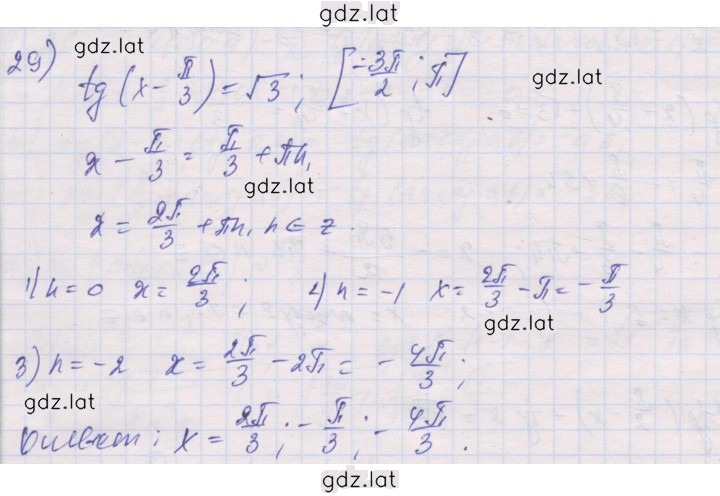 gdz.lat
29) tg(x - π/3) = √3; [-3π/2; π]
gdz.lat
gdz.lat
x - π/3 = π/3 + πn,
gdz.lat
x = 2π/3 + πn, n ∈ z.
1) n = 0 x = 2π/3; 2) n = -1 x = 2π/3 - π = -π/3
gdz.lat
3) n = -2 x = 2π/3 - 2π = -4π/3;
gdz.lat
Ответ: x = 2π/3; -π/3; -4π/3.
gdz.lat